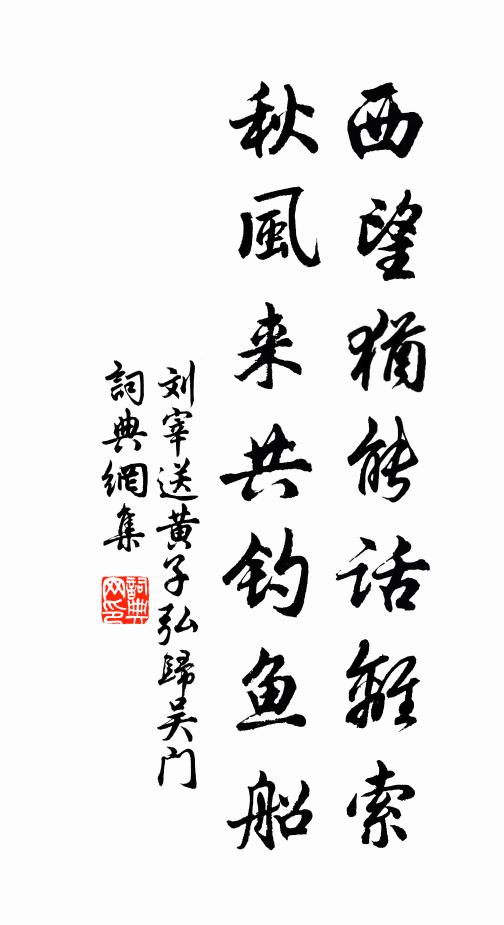 西望猶能話離索
秋風来共钓鱼船
刘宰送黄子弘歸吴门
詞典網集
詞典网印